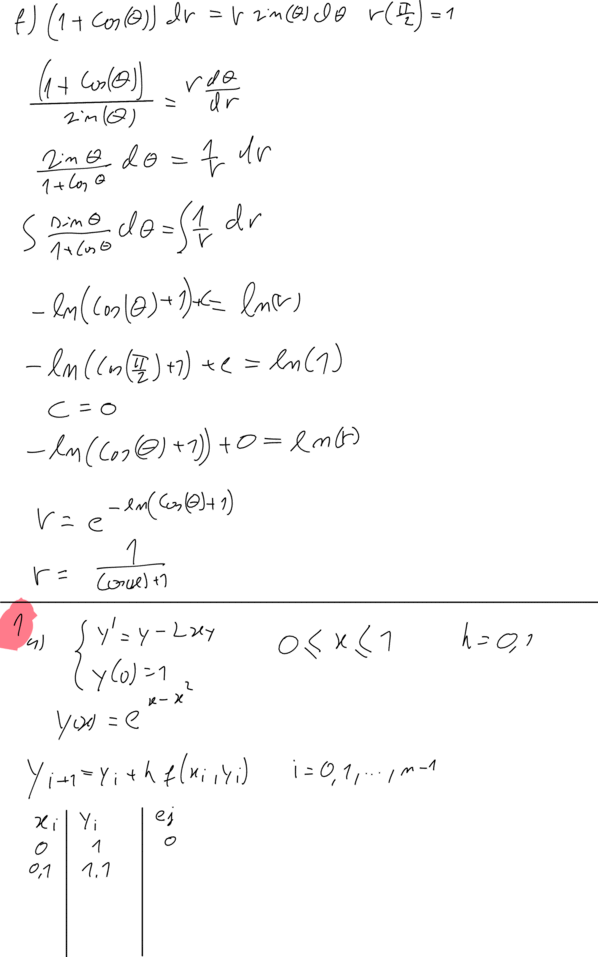 f) (1 + cos(θ)) dr = r sin(θ) dθ r(π/2) = 1
(1 + cos(θ))/sin(θ) = r dθ/dr
sin θ/(1 + cos θ) dθ = 1/r dr
∫ sin θ/(1 + cos θ) dθ = ∫ 1/r dr
-ln(cos(θ) + 1) + c = ln(r)
-ln(cos(π/2) + 1) + c = ln(1)
c = 0
-ln(cos(θ) + 1)) + 0 = ln(r)
r = e^(-ln(cos(θ) + 1))
r = 1/(cos(θ) + 1)
1 a) { y' = y - 2xy 0 ≤ x ≤ 1 h = 0,1
y(0) = 1
y(x) = e^(x - x²)
y_(i+1) = y_i + h f(x_i, y_i) i = 0, 1, ..., n-1
x_i | y_i | e_j
0 | 1 | 0
0,1 | 1.1